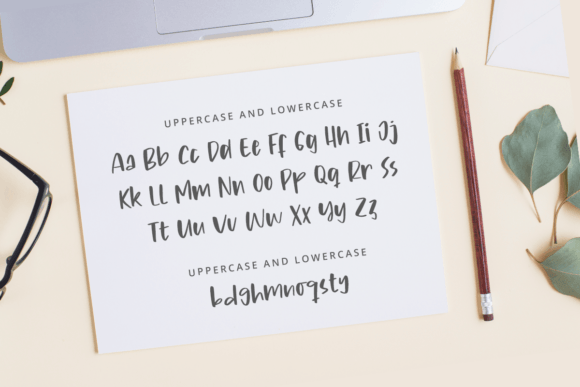 UPPERCASE AND LOWERCASE
Aa Bb Cc Dd Ee Ff Gg Hh Ii Jj
Kk LL Mm Nn Oo Pp Qq Rr Ss
Tt Uu Vv Ww Xx Yy Zz
UPPERCASE AND LOWERCASE
bdghmnoqsty